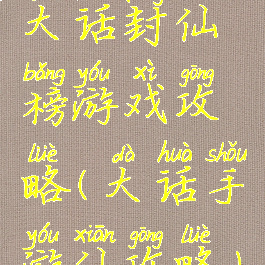 大话封仙
bǎng yóu xì gōng
榜游戏攻
lüè dà huà shǒu
略(大话手
yóu xiān gōng lüè
游仙攻略)